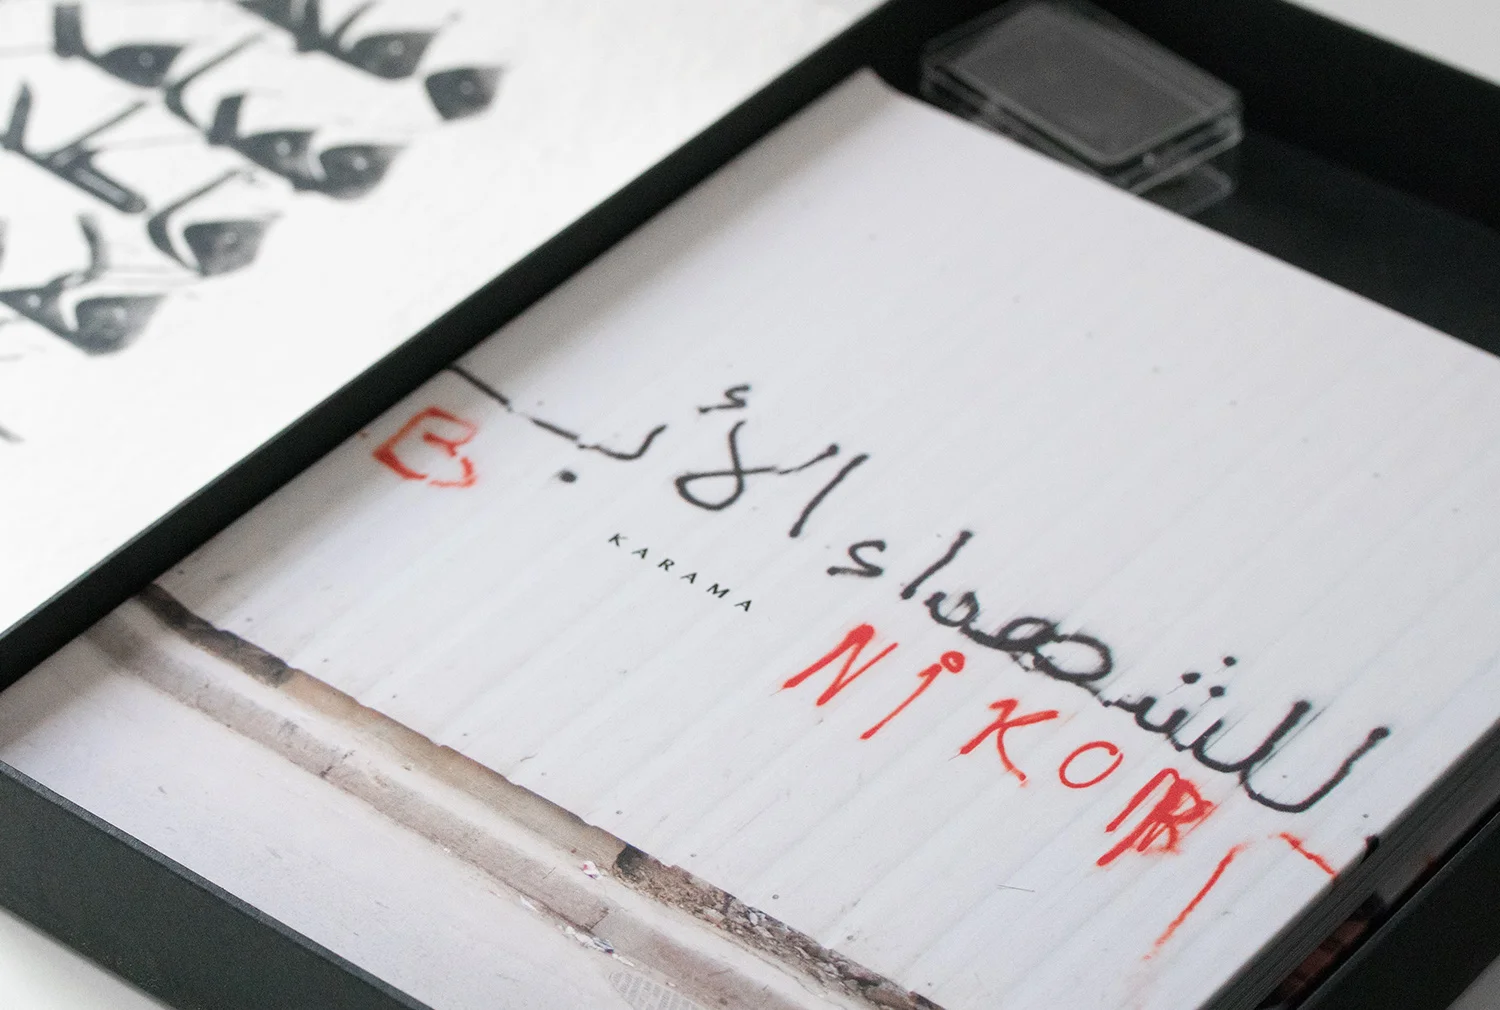 للشهداء الأبـ
KARAMA
NiKO